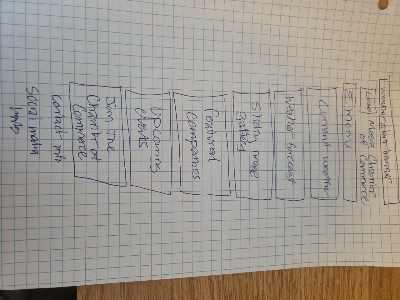 weather alert banner
Logo Moose Chamber
of Commerce
menu
Current weather
weather forecast
Sliding image
gallery
Featured
companies
Upcoming
events
Join the
Chamber of
Commerce
contact info
Social media
links